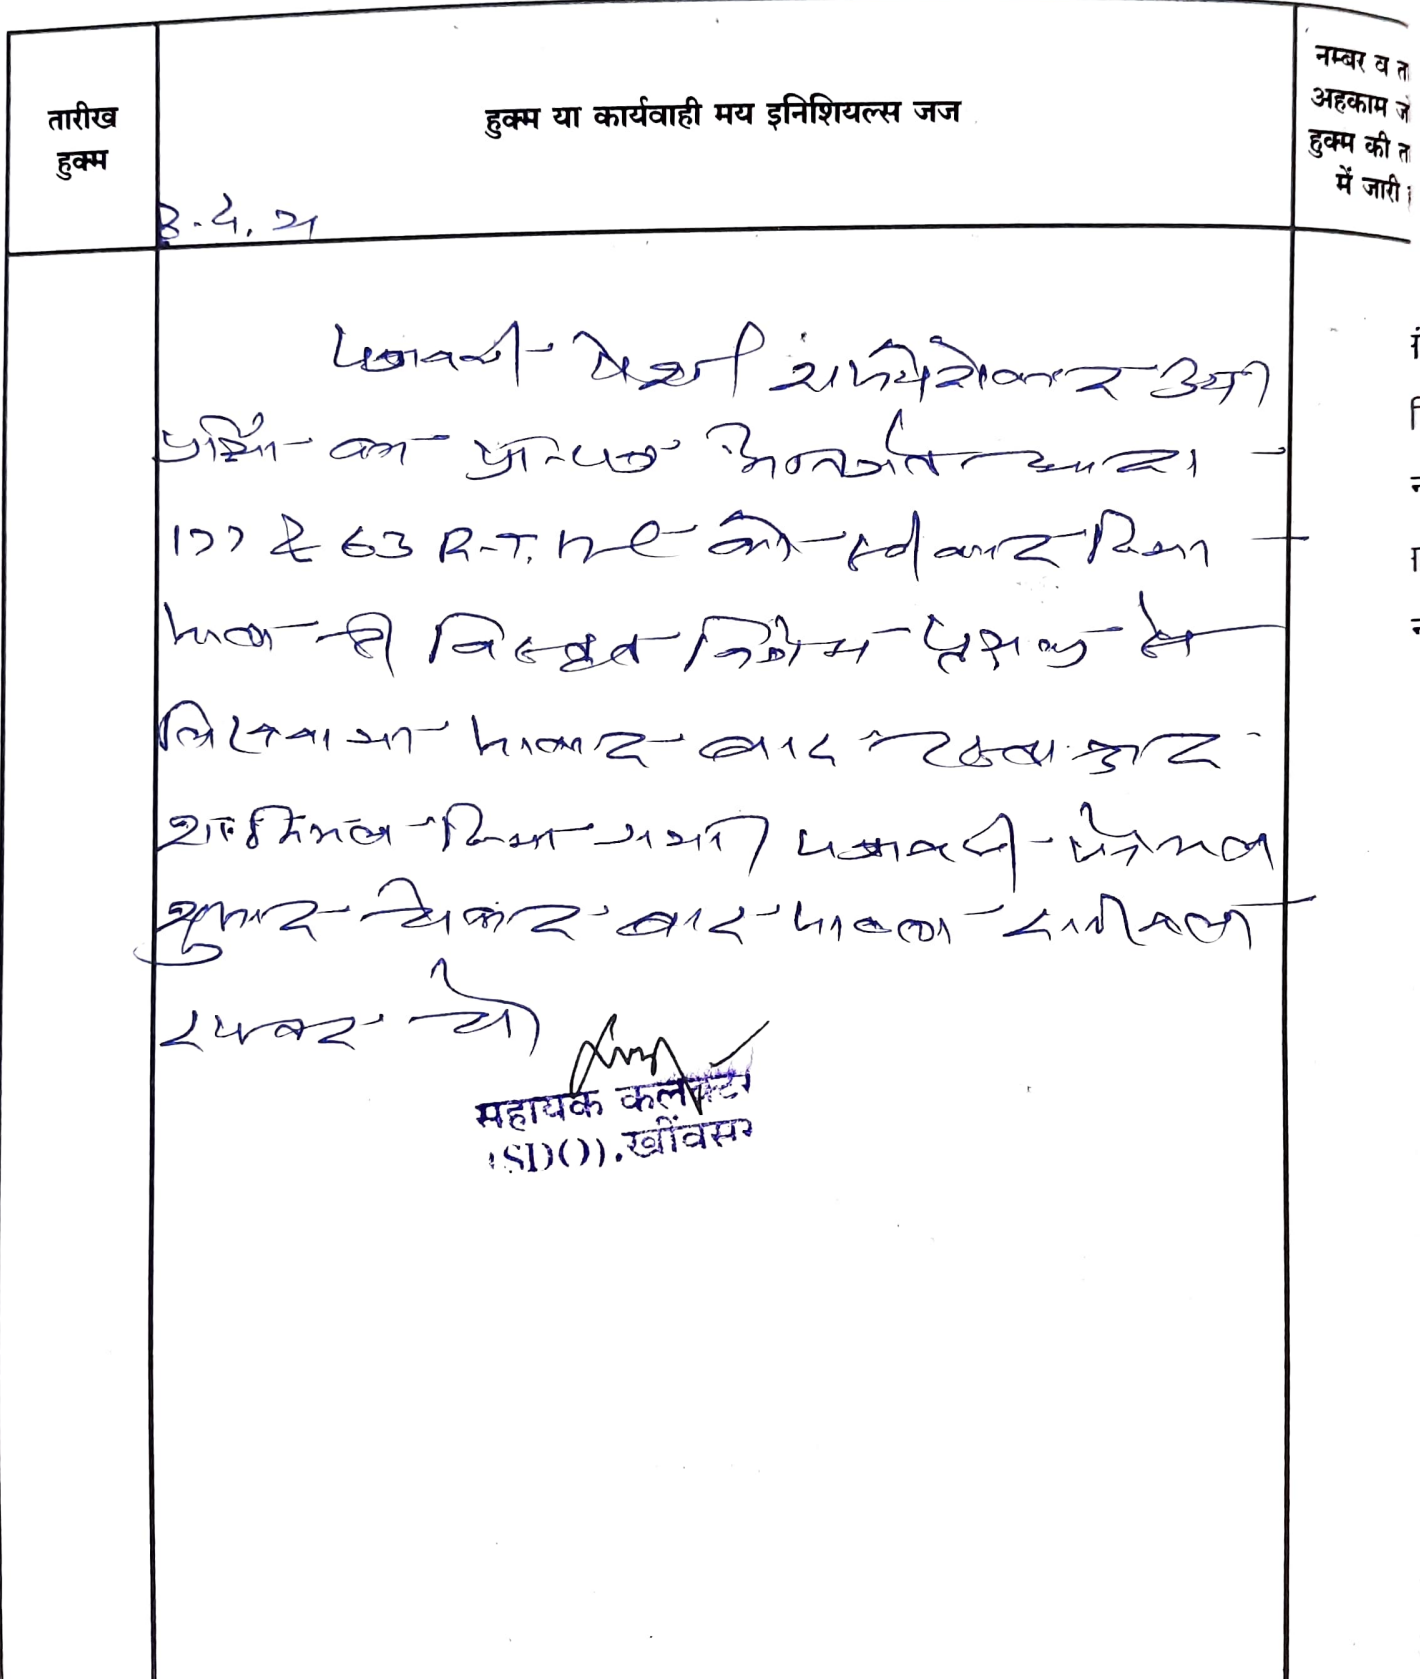 तारीख
हुक्म
हुक्म या कार्यवाही मय इनिशियल्स जज
नम्बर व ता
अहकाम जो
हुक्म की ता
में जारी
पत्रावली पेश
प्रार्थी का प्रा-पत्र अन्तर्गत धारा
177 & 63 R.T. को स्वीकार किया
जाता है विस्तृत निर्णय पृथक से
लिखवाया जाकर बाद हस्ताक्षर
शामिल किया गया पत्रावली फैसल
शुमार होकर बाद दाखिल
दफ्तर हो
सहायक कलक्टर
(SDO). खींवसर